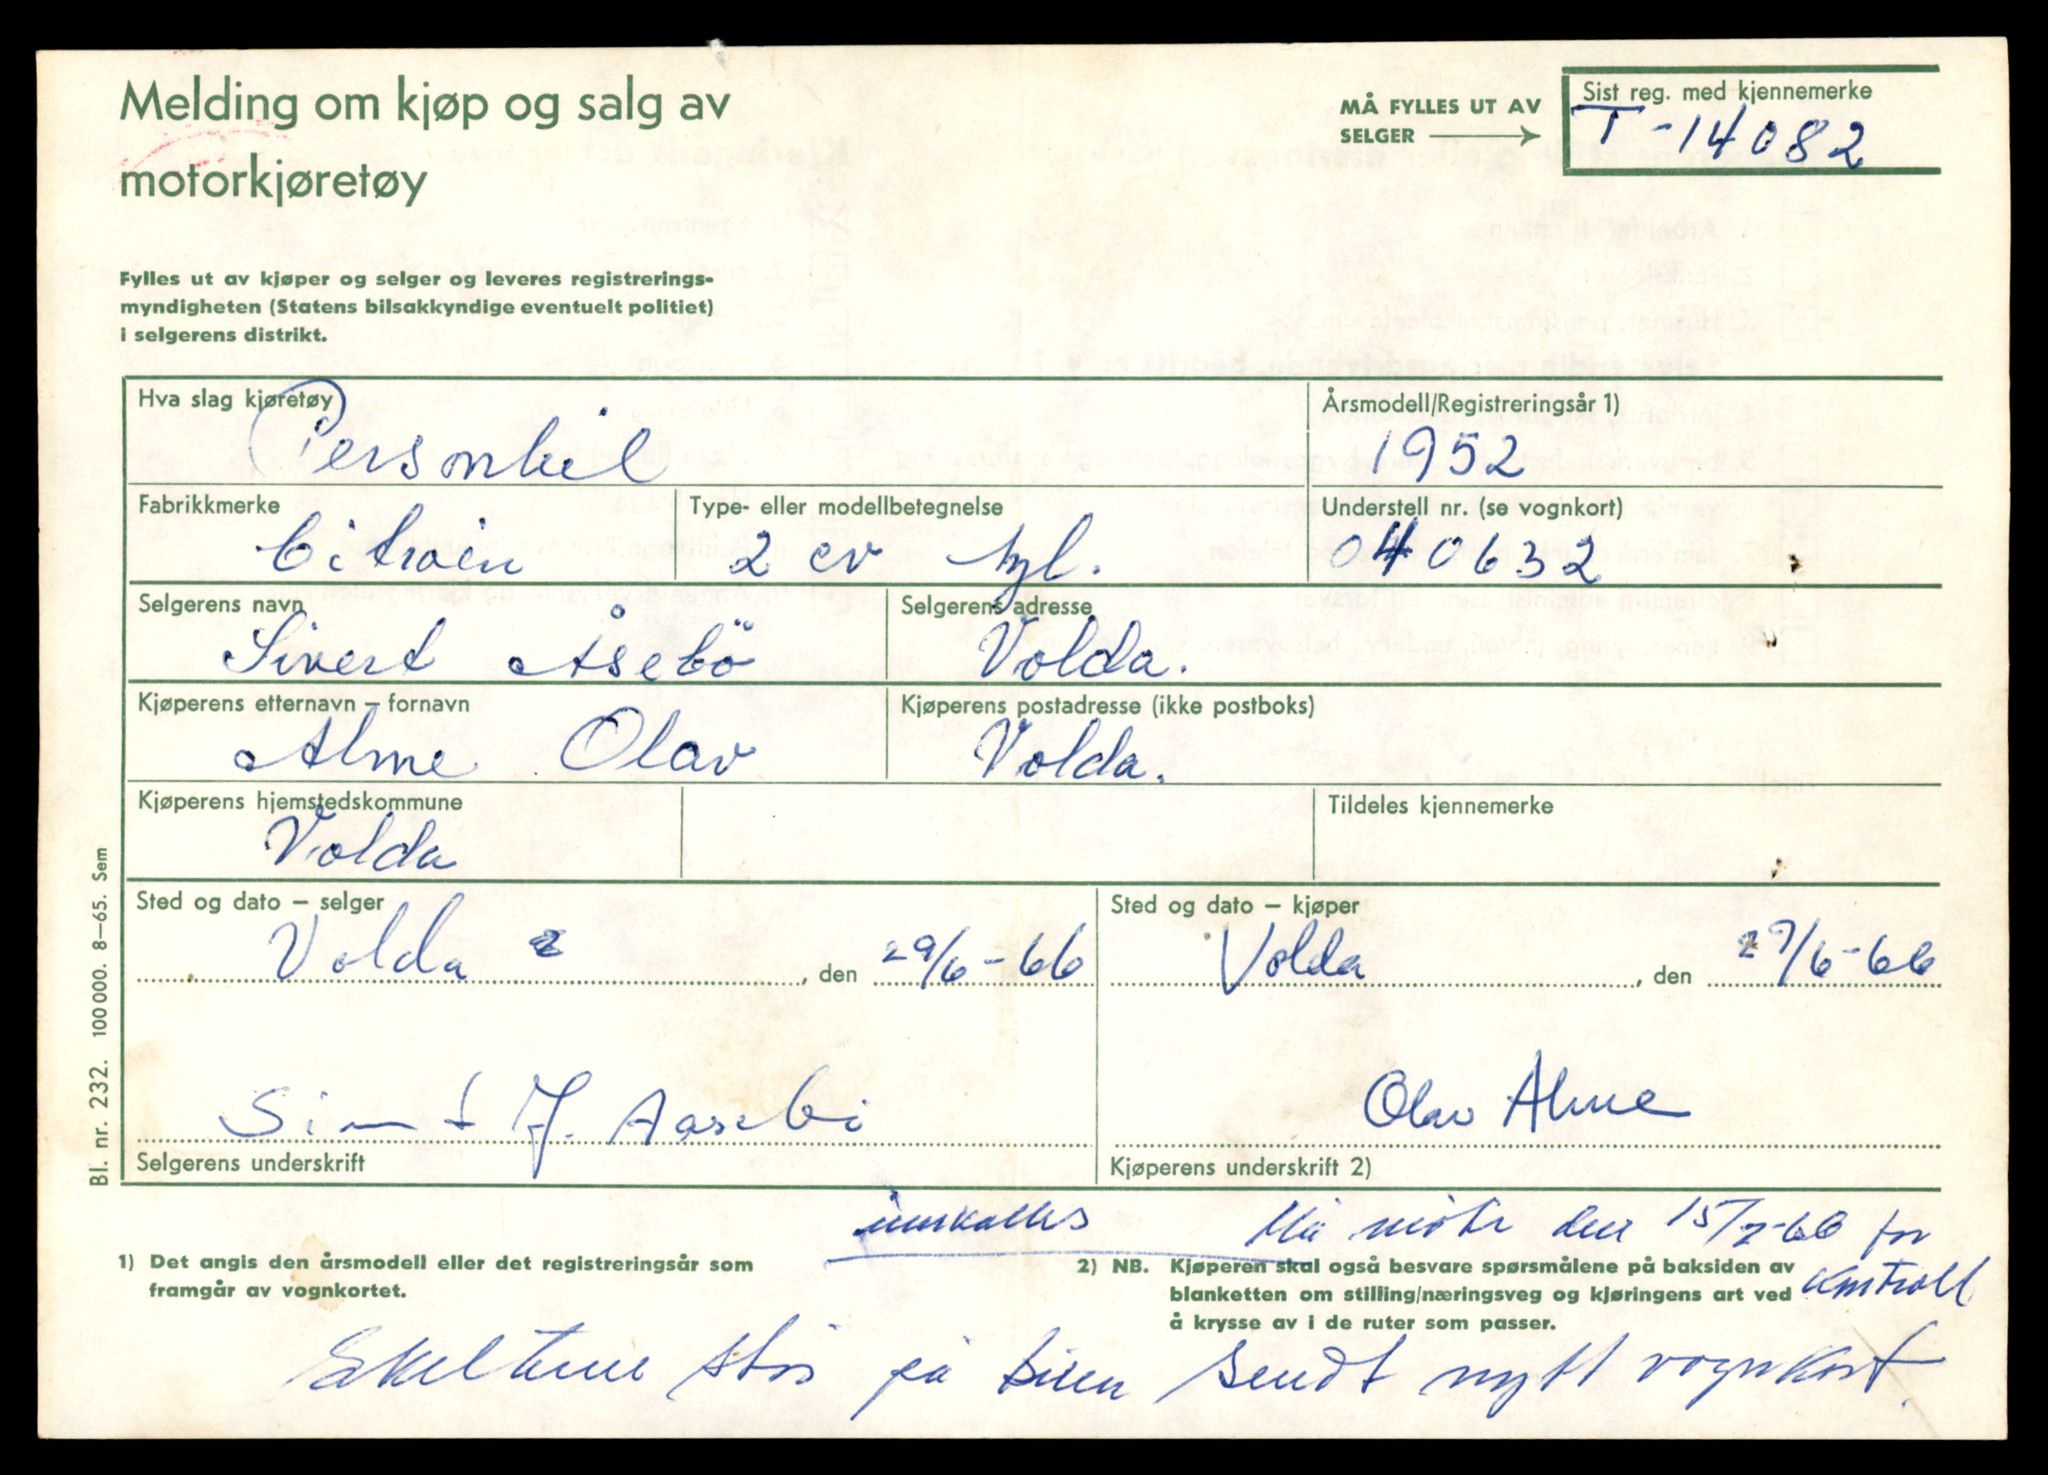 Melding om kjøp og salg av
motorkjøretøy
MÅ FYLLES UT AV
SELGER
Sist reg. med kjennemerke
T-14082
Fylles ut av kjøper og selger og leveres registrerings-
myndigheten (Statens bilsakkyndige eventuelt politiet)
i selgerens distrikt.
Hva slag kjøretøy
Personbil
Årsmodell/Registreringsår 1)
1952
Fabrikkmerke
Citroën
Type- eller modellbetegnelse
2 cv
Understell nr. (se vognkort)
040632
Selgerens navn
Sivert Åsebö
Selgerens adresse
Volda.
Kjøperens etternavn – fornavn
Alme Olav
Kjøperens postadresse (ikke postboks)
Volda.
Kjøperens hjemstedskommune
Volda
Tildeles kjennemerke
Sted og dato – selger
Volda , den 29/6-66
Sted og dato – kjøper
Volda , den 29/6-66
Sivert J. Aasebö
Selgerens underskrift
Olav Alme
Kjøperens underskrift 2)
innkalles Må møte den 15/7-66 for
kontroll
1) Det angis den årsmodell eller det registreringsår som
framgår av vognkortet.
2) NB. Kjøperen skal også besvare spørsmålene på baksiden av
blanketten om stilling/næringsveg og kjøringens art ved
å krysse av i de ruter som passer.
Skeltene står på bilen Sendt nytt vognkort.
Bl. nr. 232. 100 000. 8-65. Sem